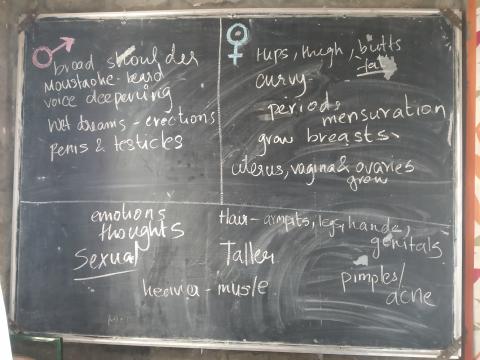 broad shoulder
Moustache - beard
voice deepening
Wet dreams - erections
Penis & testicles
Hips, thigh, butts
fat
curvy -
- periods
mensuration
grow breasts
uterus, vagina & ovaries
grow
emotions
thoughts
Sexual
Hair - armpits, legs, hands,
genitals
Taller
heavier - musle
pimples/
acne